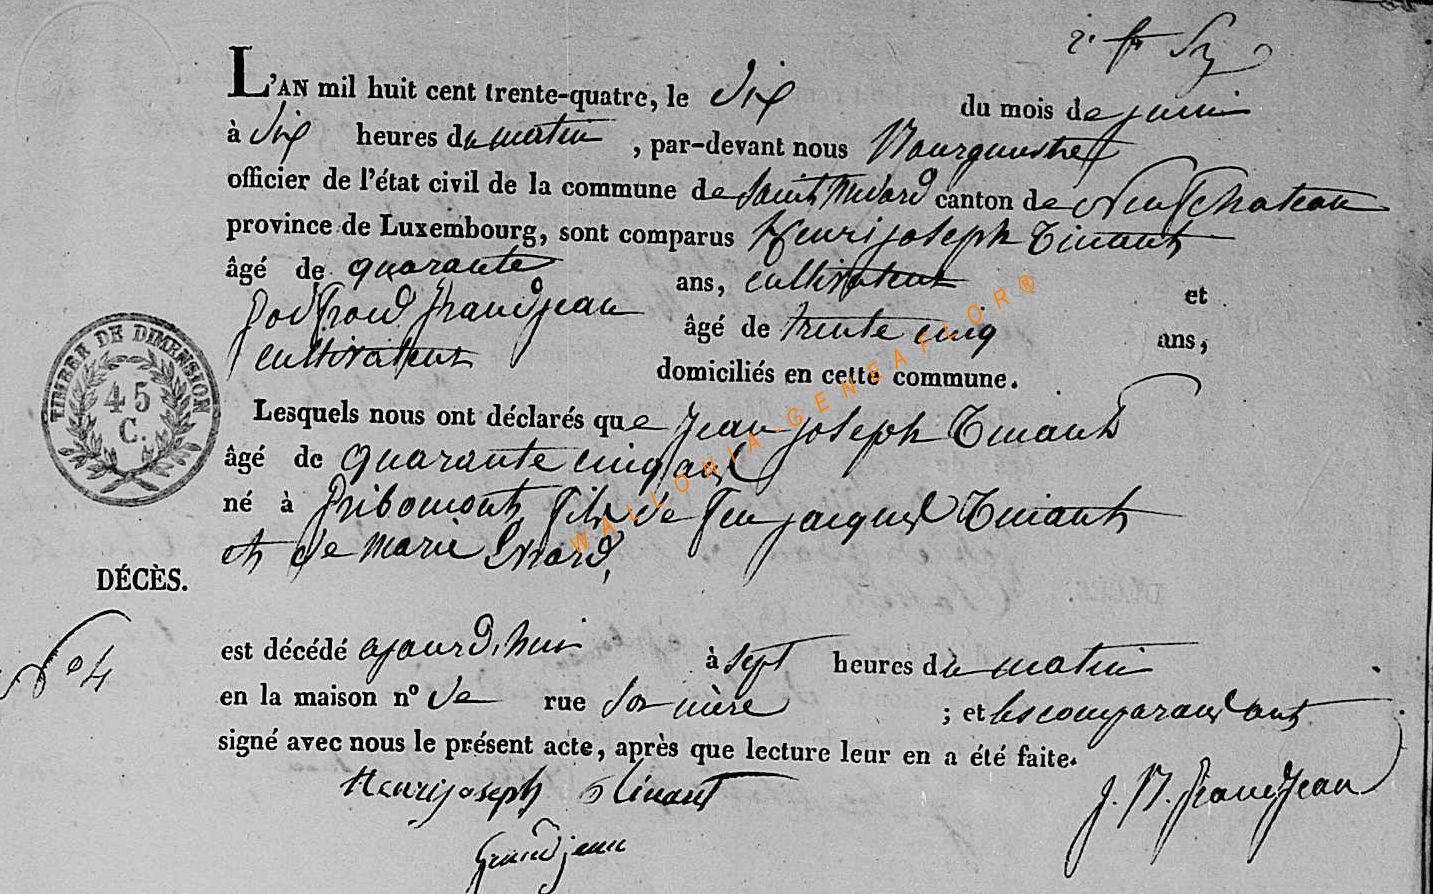 2e fr Sx
L'AN mil huit cent trente-quatre, le Six du mois de juin
à Six heures du matin , par-devant nous Bourguestre
officier de l'état civil de la commune de Saint Medard canton de Neufchateau
province de Luxembourg, sont comparus Henri joseph Tinant
âgé de quarante ans, cultivateur et
godfroid grandjean âgé de trente cinq ans,
cultivateur domiciliés en cette commune.
Lesquels nous ont déclarés que jean joseph Tinant
âgé de quarante cinq ans
né à gribomont fils de feu jacques Tinant
et de marie Evrard,
DÉCÈS.
No 4
est décédé ajourd'huis à sept heures du matin
en la maison no de rue Sa mère ; et les comparans ont
signé avec nous le présent acte, après que lecture leur en a été faite.
Henri joseph tinant
J. B. grandjean
grandjean
TIMBRE DE DIMENSION
45
C.
WALLONIA-GENEAFLOR®